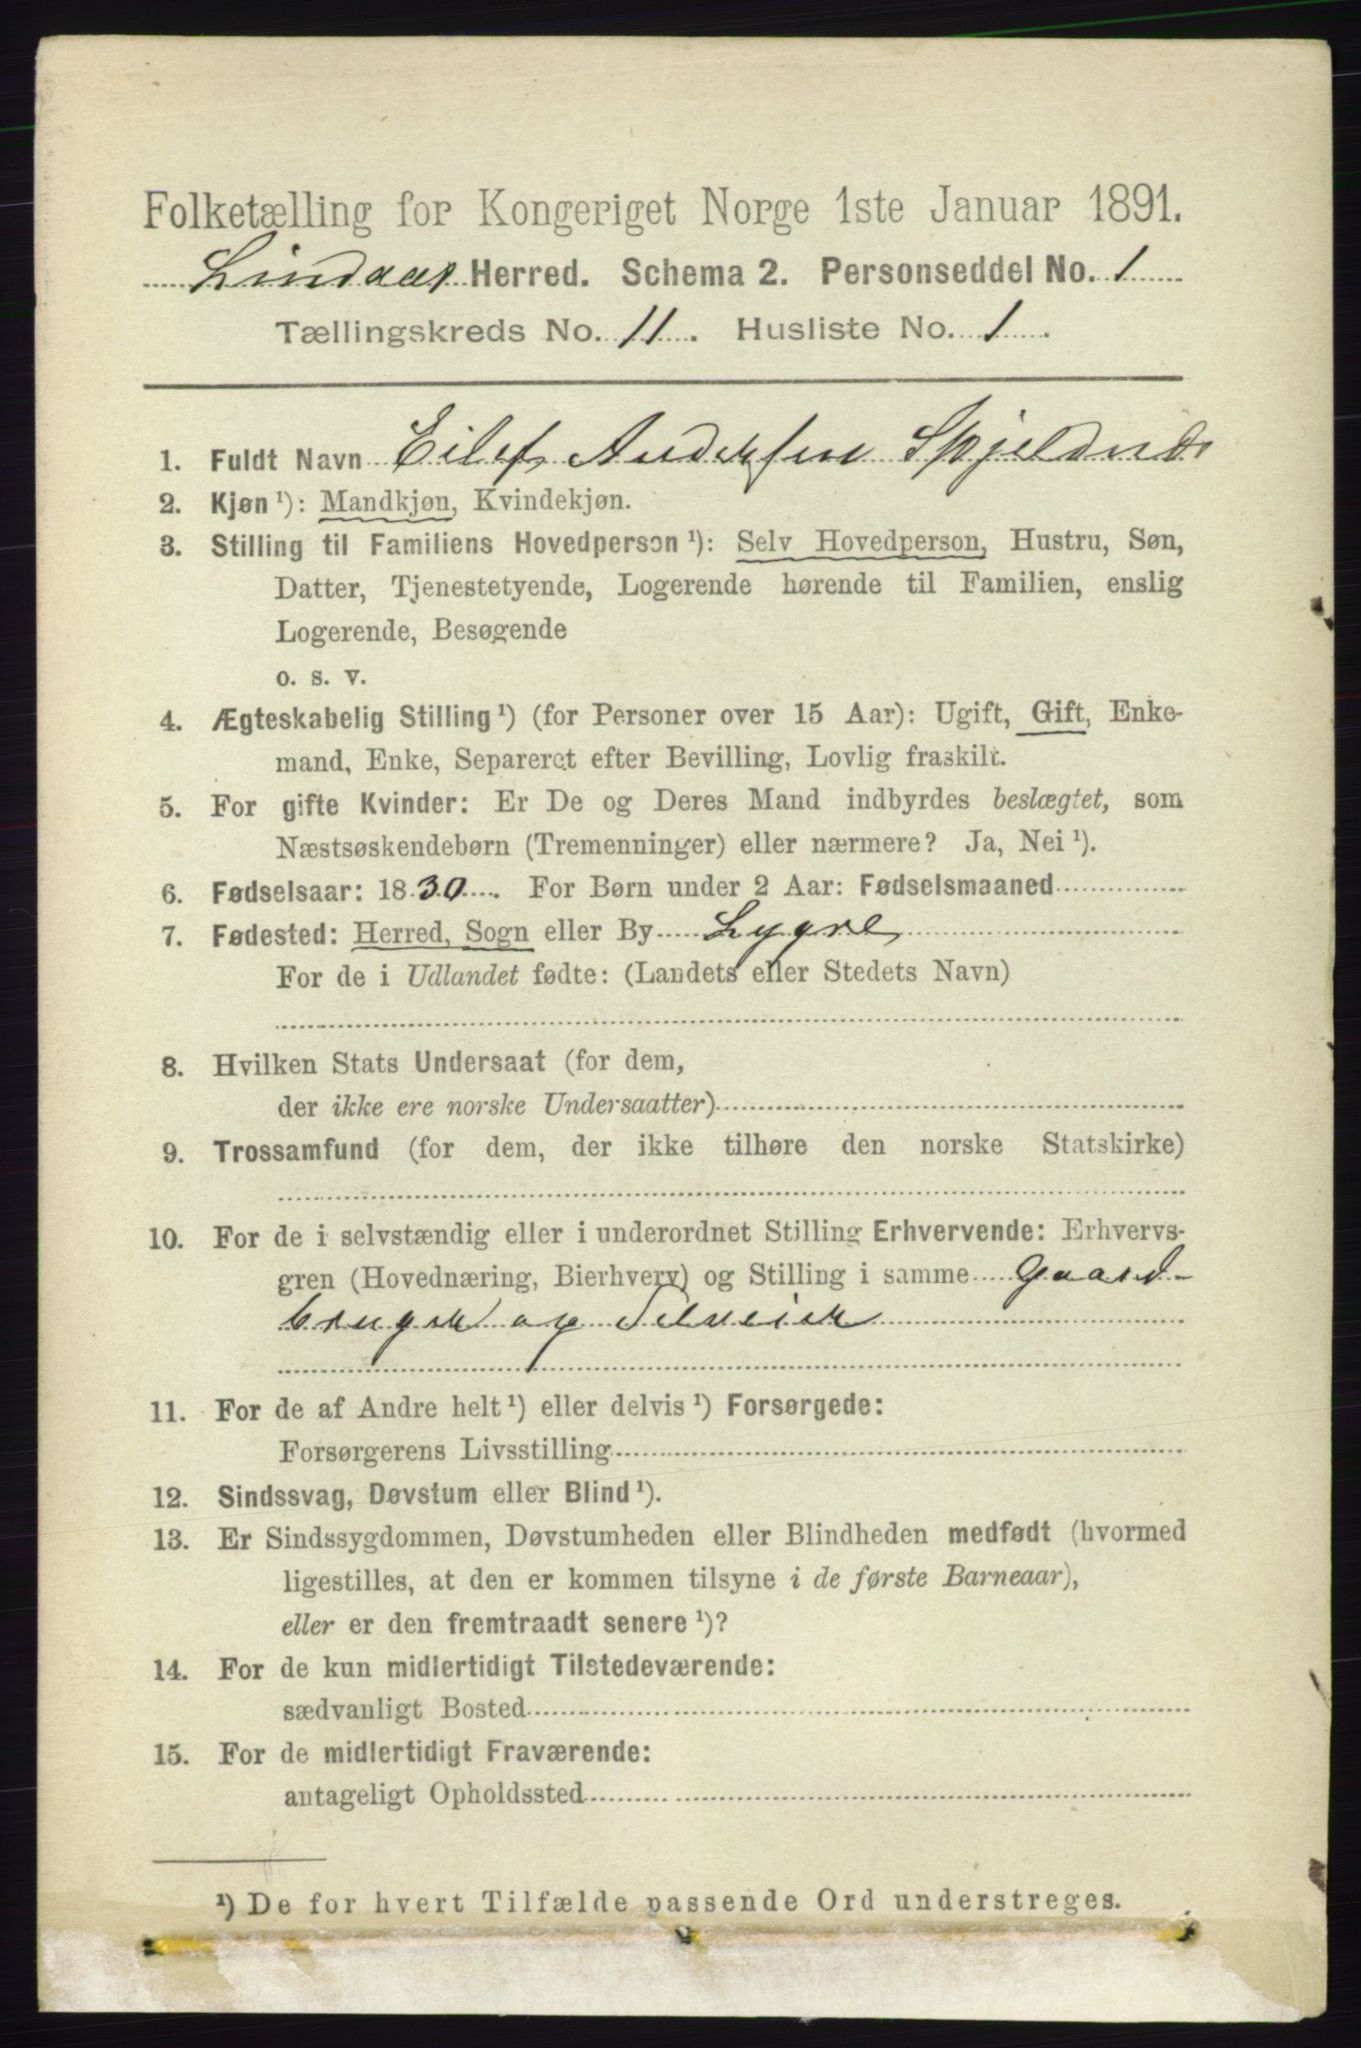 Folketælling for Kongeriget Norge 1ste Januar 1891.
Lindaas Herred. Schema 2. Personseddel No. 1
Tællingskreds No. 11. Husliste No. 1.
1. Fuldt Navn Eilef Andersen Spjeldnæs
2. Kjøn ¹): Mandkjøn, Kvindekjøn.
3. Stilling til Familiens Hovedperson ¹): Selv Hovedperson, Hustru, Søn,
Datter, Tjenestetyende, Logerende hørende til Familien, enslig
Logerende, Besøgende
o. s. v.
4. Ægteskabelig Stilling ¹) (for Personer over 15 Aar): Ugift, Gift, Enke-
mand, Enke, Separeret efter Bevilling, Lovlig fraskilt.
5. For gifte Kvinder: Er De og Deres Mand indbyrdes beslægtet, som
Næstsøskendebørn (Tremenninger) eller nærmere? Ja, Nei ¹).
6. Fødselsaar: 1830. For Børn under 2 Aar: Fødselsmaaned
7. Fødested: Herred, Sogn eller By Lygre
For de i Udlandet fødte: (Landets eller Stedets Navn)
8. Hvilken Stats Undersaat (for dem,
der ikke ere norske Undersaatter)
9. Trossamfund (for dem, der ikke tilhøre den norske Statskirke)
10. For de i selvstændig eller i underordnet Stilling Erhvervende: Erhvervs-
gren (Hovednæring, Bierhverv) og Stilling i samme Gaard-
bruger og Selveier
11. For de af Andre helt ¹) eller delvis ¹) Forsørgede:
Forsørgerens Livsstilling
12. Sindssvag, Døvstum eller Blind ¹).
13. Er Sindssygdommen, Døvstumheden eller Blindheden medfødt (hvormed
ligestilles, at den er kommen tilsyne i de første Barneaar),
eller er den fremtraadt senere ¹)?
14. For de kun midlertidigt Tilstedeværende:
sædvanligt Bosted
15. For de midlertidigt Fraværende:
antageligt Opholdssted
¹) De for hvert Tilfælde passende Ord understreges.